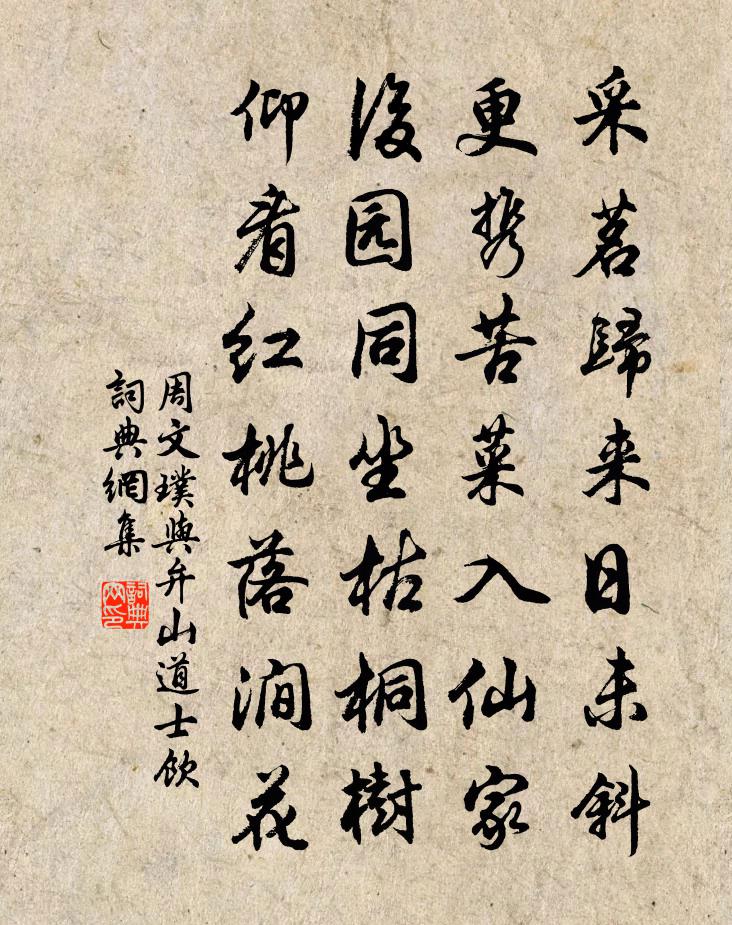 采茗歸来日未斜
更携苦菜入仙家
後园同坐枯桐樹
仰看红桃落涧花
周文璞與弁山道士飲
詞典網集
詞典网印